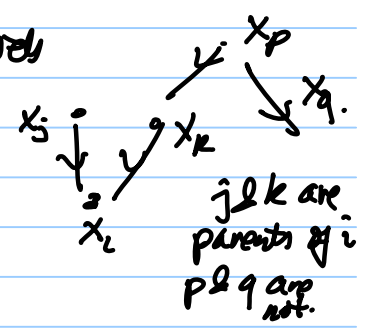 X_p
X_q.
X_j
X_k
X_i
j & k are
parents of i
p & q are
not.